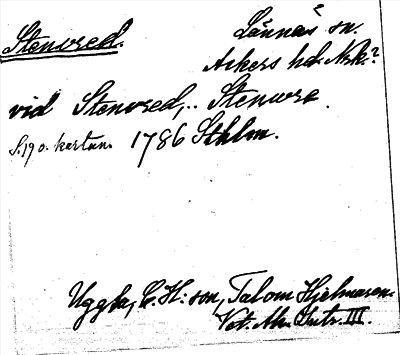 Stenvred.
Lännäs sn.
Askers hd. Nrk.?
vid Stenvred,.. Stenvre
S. 190. kartan. 1786 Sthlm.
Uggla, C. H:son, Tal om Hjelmaren.
Vet. Ak. Intr. III.